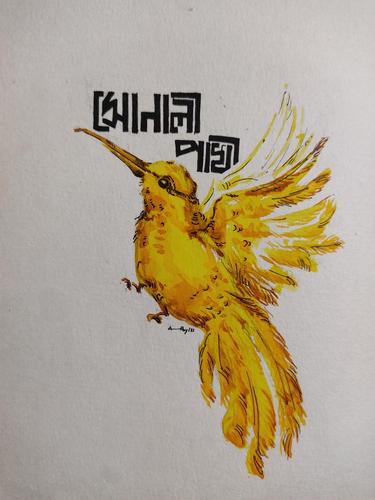 সোনালী
পাখী